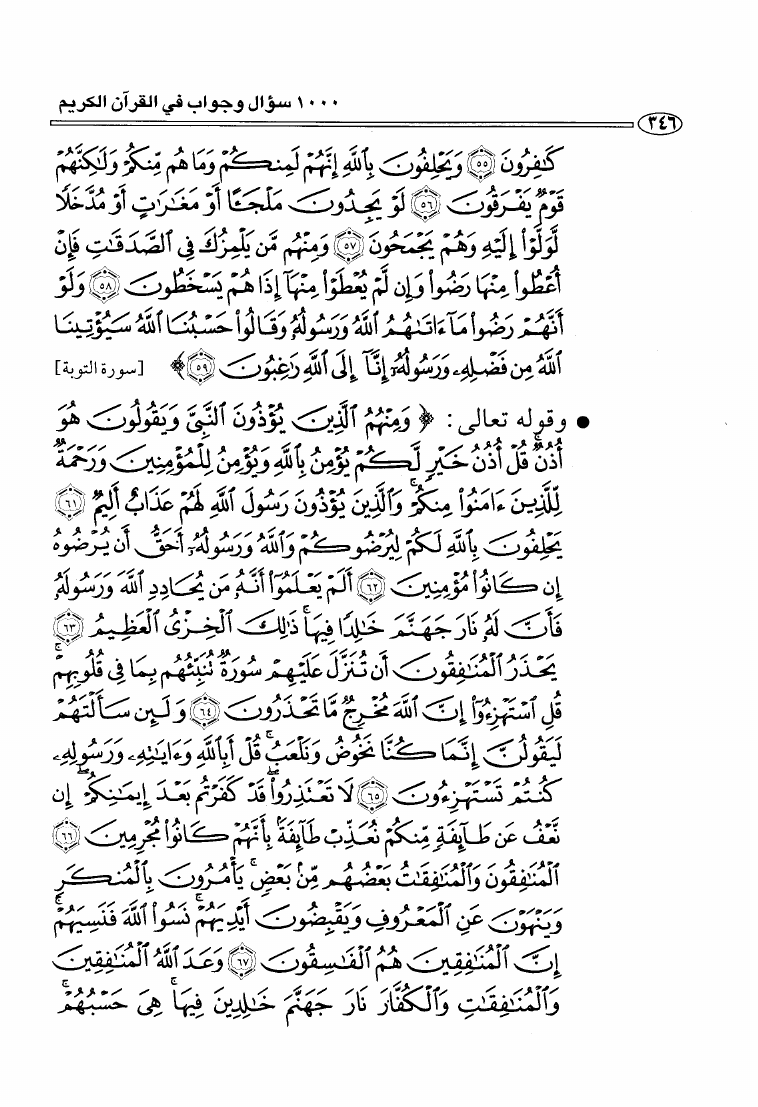 ١٠٠٠ سؤال وجواب في القرآن الكريم
٣٤٦
كَٰفِرُونَ ٥٥ وَيَحْلِفُونَ بِٱللَّهِ إِنَّهُمْ لَمِنكُمْ وَمَا هُم مِّنكُمْ وَلَٰكِنَّهُمْ
قَوْمٌ يَفْرَقُونَ ٥٦ لَوْ يَجِدُونَ مَلْجَـًٔا أَوْ مَغَٰرَٰتٍ أَوْ مُدَّخَلًا
لَّوَلَّوْا۟ إِلَيْهِ وَهُمْ يَجْمَحُونَ ٥٧ وَمِنْهُم مَّن يَلْمِزُكَ فِى ٱلصَّدَقَٰتِ فَإِنْ
أُعْطُوا۟ مِنْهَا رَضُوا۟ وَإِن لَّمْ يُعْطَوْا۟ مِنْهَآ إِذَا هُمْ يَسْخَطُونَ ٥٨ وَلَوْ
أَنَّهُمْ رَضُوا۟ مَآ ءَاتَىٰهُمُ ٱللَّهُ وَرَسُولُهُۥ وَقَالُوا۟ حَسْبُنَا ٱللَّهُ سَيُؤْتِينَا
ٱللَّهُ مِن فَضْلِهِۦ وَرَسُولُهُۥٓ إِنَّآ إِلَى ٱللَّهِ رَٰغِبُونَ ٥٩ ﴾ [سورة التوبة]
● وقوله تعالى: ﴿ وَمِنْهُمُ ٱلَّذِينَ يُؤْذُونَ ٱلنَّبِىَّ وَيَقُولُونَ هُوَ
أُذُنٌ ۚ قُلْ أُذُنُ خَيْرٍ لَّكُمْ يُؤْمِنُ بِٱللَّهِ وَيُؤْمِنُ لِلْمُؤْمِنِينَ وَرَحْمَةٌ
لِّلَّذِينَ ءَامَنُوا۟ مِنكُمْ ۚ وَٱلَّذِينَ يُؤْذُونَ رَسُولَ ٱللَّهِ لَهُمْ عَذَابٌ أَلِيمٌ ٦١
يَحْلِفُونَ بِٱللَّهِ لَكُمْ لِيُرْضُوكُمْ وَٱللَّهُ وَرَسُولُهُۥٓ أَحَقُّ أَن يُرْضُوهُ
إِن كَانُوا۟ مُؤْمِنِينَ ٦٢ أَلَمْ يَعْلَمُوٓا۟ أَنَّهُۥ مَن يُحَادِدِ ٱللَّهَ وَرَسُولَهُۥ
فَأَنَّ لَهُۥ نَارَ جَهَنَّمَ خَٰلِدًا فِيهَا ۚ ذَٰلِكَ ٱلْخِزْىُ ٱلْعَظِيمُ ٦٣
يَحْذَرُ ٱلْمُنَٰفِقُونَ أَن تُنَزَّلَ عَلَيْهِمْ سُورَةٌ تُنَبِّئُهُم بِمَا فِى قُلُوبِهِمْ ۚ
قُلِ ٱسْتَهْزِءُوٓا۟ إِنَّ ٱللَّهَ مُخْرِجٌ مَّا تَحْذَرُونَ ٦٤ وَلَئِن سَأَلْتَهُمْ
لَيَقُولُنَّ إِنَّمَا كُنَّا نَخُوضُ وَنَلْعَبُ ۚ قُلْ أَبِٱللَّهِ وَءَايَٰتِهِۦ وَرَسُولِهِۦ
كُنتُمْ تَسْتَهْزِءُونَ ٦٥ لَا تَعْتَذِرُوا۟ قَدْ كَفَرْتُم بَعْدَ إِيمَٰنِكُمْ ۚ إِن
نَّعْفُ عَن طَآئِفَةٍ مِّنكُمْ نُعَذِّبْ طَآئِفَةًۢ بِأَنَّهُمْ كَانُوا۟ مُجْرِمِينَ ٦٦
ٱلْمُنَٰفِقُونَ وَٱلْمُنَٰفِقَٰتُ بَعْضُهُم مِّنۢ بَعْضٍ ۚ يَأْمُرُونَ بِٱلْمُنكَرِ
وَيَنْهَوْنَ عَنِ ٱلْمَعْرُوفِ وَيَقْبِضُونَ أَيْدِيَهُمْ ۚ نَسُوا۟ ٱللَّهَ فَنَسِيَهُمْ ۗ
إِنَّ ٱلْمُنَٰفِقِينَ هُمُ ٱلْفَٰسِقُونَ ٦٧ وَعَدَ ٱللَّهُ ٱلْمُنَٰفِقِينَ
وَٱلْمُنَٰفِقَٰتِ وَٱلْكُفَّارَ نَارَ جَهَنَّمَ خَٰلِدِينَ فِيهَا ۚ هِىَ حَسْبُهُمْ ۚ